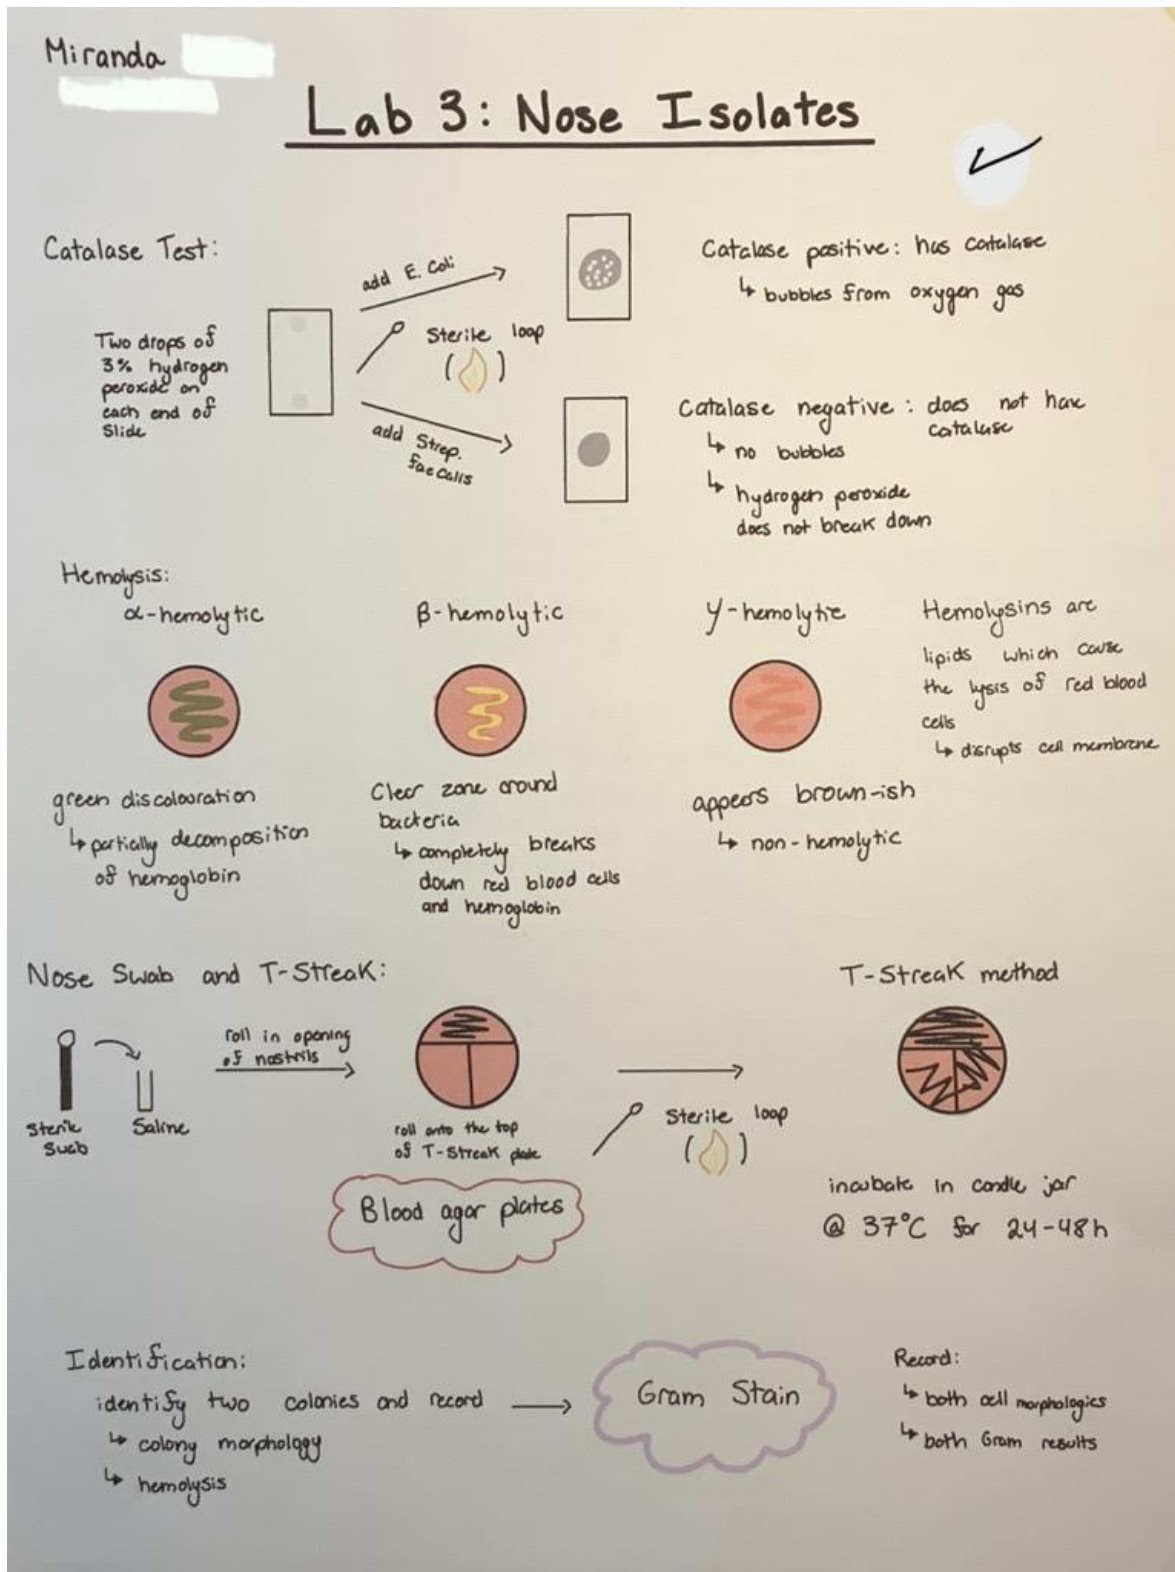 Miranda
Lab 3: Nose Isolates
Catalase Test:
Two drops of
3% hydrogen
peroxide on
each end of
Slide
add E. Coli
Sterile loop
add Strep.
faecalis
Catalase positive: has catalase
↳ bubbles from oxygen gas
Catalase negative: does not have
catalase
↳ no bubbles
↳ hydrogen peroxide
does not break down
Hemolysis:
α-hemolytic
green discolouration
↳ partially decomposition
of hemoglobin
β-hemolytic
Clear zone around
bacteria
↳ completely breaks
down red blood cells
and hemoglobin
γ-hemolytic
appears brown-ish
↳ non-hemolytic
Hemolysins are
lipids which cause
the lysis of red blood
cells
↳ disrupts cell membrane
Nose Swab and T-Streak:
Sterile
Swab
Saline
roll in opening
of nostrils
roll onto the top
of T-Streak plate
Blood agar plates
Sterile loop
T-Streak method
incubate in candle jar
@ 37°C for 24-48h
Identification:
identify two colonies and record
↳ colony morphology
↳ hemolysis
Gram Stain
Record:
↳ both cell morphologies
↳ both Gram results